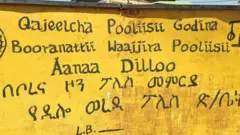 Qajeelcha Poolisii Godina
Booranattii Waajjira Poolisii
Aanaa Dilloo
በቦረና ዞን ፖሊስ መምርያ
የዲሎ ወረዳ ፖሊስ ጽ/ቤት
L.B.